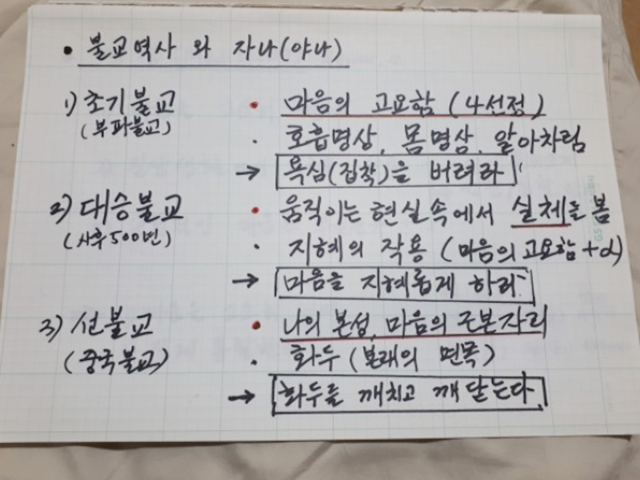 • 불교역사 와 자나(야나)
1) 초기불교 • 마음의 고요함 (4선정)
(부파불교) · 호흡명상, 몸명상, 알아차림
→ 욕심(집착)을 버려라!
2) 대승불교 • 움직이는 현실속에서 실체를 봄
(사후500년) · 지혜의 작용 (마음의 고요함+α)
→ 마음을 지혜롭게 하라
3) 선불교 • 나의 본성, 마음의 근본자리
(중국불교) · 화두 (본래의 면목)
→ 화두를 깨치고 깨닫는다